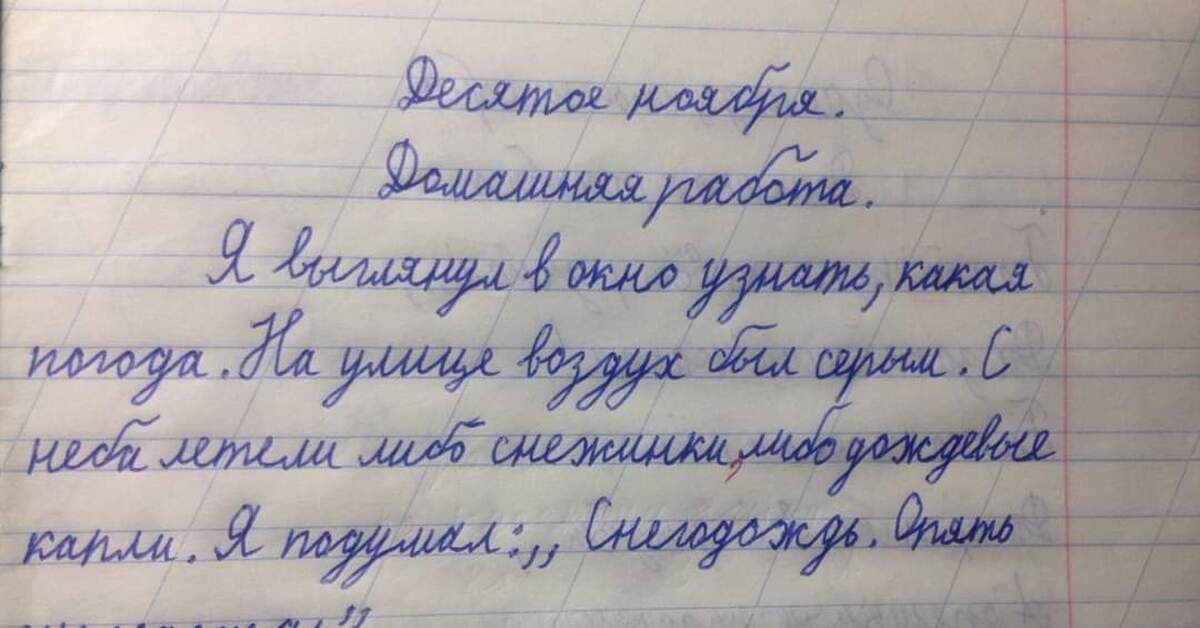 Десятое ноября.
Домашняя работа.
Я выглянул в окно узнать, какая
погода. На улице воздух был серым. С
неба летели либо снежинки, либо дождевые
капли. Я подумал: ,, Снегодождь. Опять